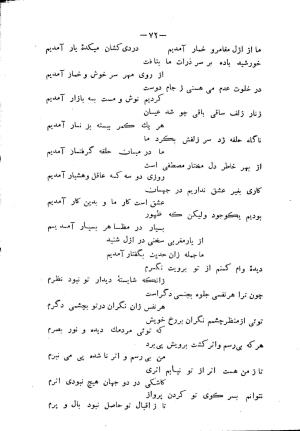 — ۷۲ —
ما از ازل مقامر و خمار آمدیم
دردی کشان میکدهٔ یار آمدیم
خورشید باده بر سر ذرات ما بتافت
از روی مهر سر خوش و خمار آمدیم
در خلوت عدم می هستی ز جام دوست
کردیم نوش و مست به بازار آمدیم
زنار زلف ساقی باقی چو شد عیان
هر یک کمر ببسته بز نار آمدیم
ناگاه حلقه زد سر زلفش بگرد ما
ما در میان حلقه گرفتار آمدیم
از بهر خاطر دل مختار مصطفی است
روزی دو سه که عاقل و هشیار آمدیم
کاری بغیر عشق نداریم در جهان
عشق است کار ما و بدین کار آمدیم
بودیم یک وجود ولیکن که ظهور
بسیار در مظاهر بسیار آمدیم
از یار مغربی سخنی در ازل شنید
ما جمله زان حدیث بگفتار آمدیم
دیده وام کنم از تو برویت نگرم
زانکه شایستهٔ دیدار تو نبود نظرم
چون ترا هر نفسی جلوه بجنسی دگر است
هر نفس زان نگران در تو بچشمی دگرم
توئی از منظر چشمم نگران بر رخ خویش
که توئی مردمک دیده و نور بصرم
هر که بی رسم و اثر گشت برویش پی برد
من بی رسم و اثر نا شده پی می نبرم
تا ز من هست اثر از تو نیابم اثری
کاشکی در دو جهان هیچ نبودی اثرم
نتوانم بسر کوی تو کردن پرواز
تا ز اقبال تو حاصل نبود بال و پرم